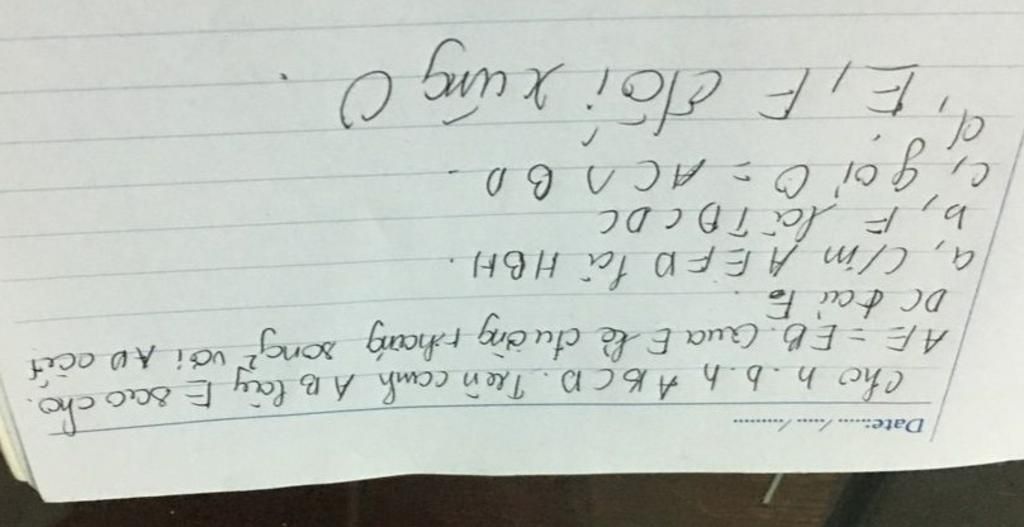 Date:....../...../.........
Cho h.b.h ABCD. Trên cạnh AB lấy E sao cho.
AE = EB. Qua E kẻ đường thẳng song² với AD cắt
DC tại F.
a, C/m AEFD là HBH.
b, F là TĐ CDC
c, gọi O = AC ∩ BD.
d, E, F đối xứng O.